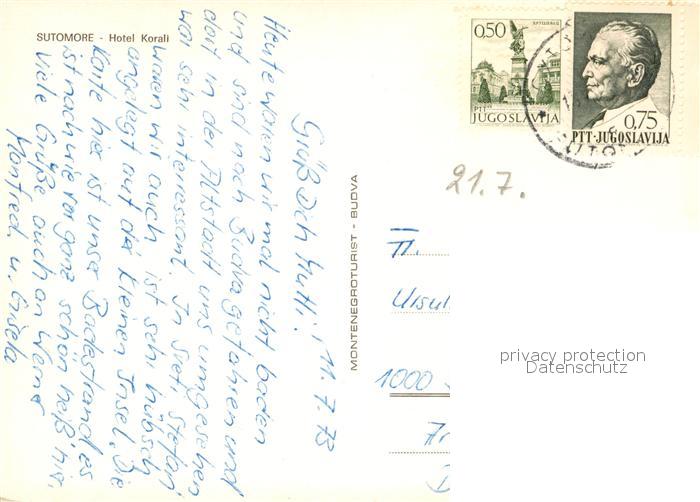 SUTOMORE - Hotel Korali
0,50
PTT
JUGOSLAVIJA
0,75
PTT-JUGOSLAVIJA
21.7.
Grüß Dich Mutti! 11.7.73
Heute waren wir mal nicht baden
und sind nach Budva gefahren und
dort in der Altstadt uns umgesehen
war sehr interessant. In Sveti Stefan
waren wir auch ist sehr hübsch
angelegt auf der kleinen Insel. Die
Karte hier ist unser Badestrand es
ist nach wie vor ganz schön heiß hier.
Viele Grüße auch an Werner
Manfred u. Gisela
MONTENEGROTURIST - BUDVA
Ursul
1000
privacy protection
Datenschutz